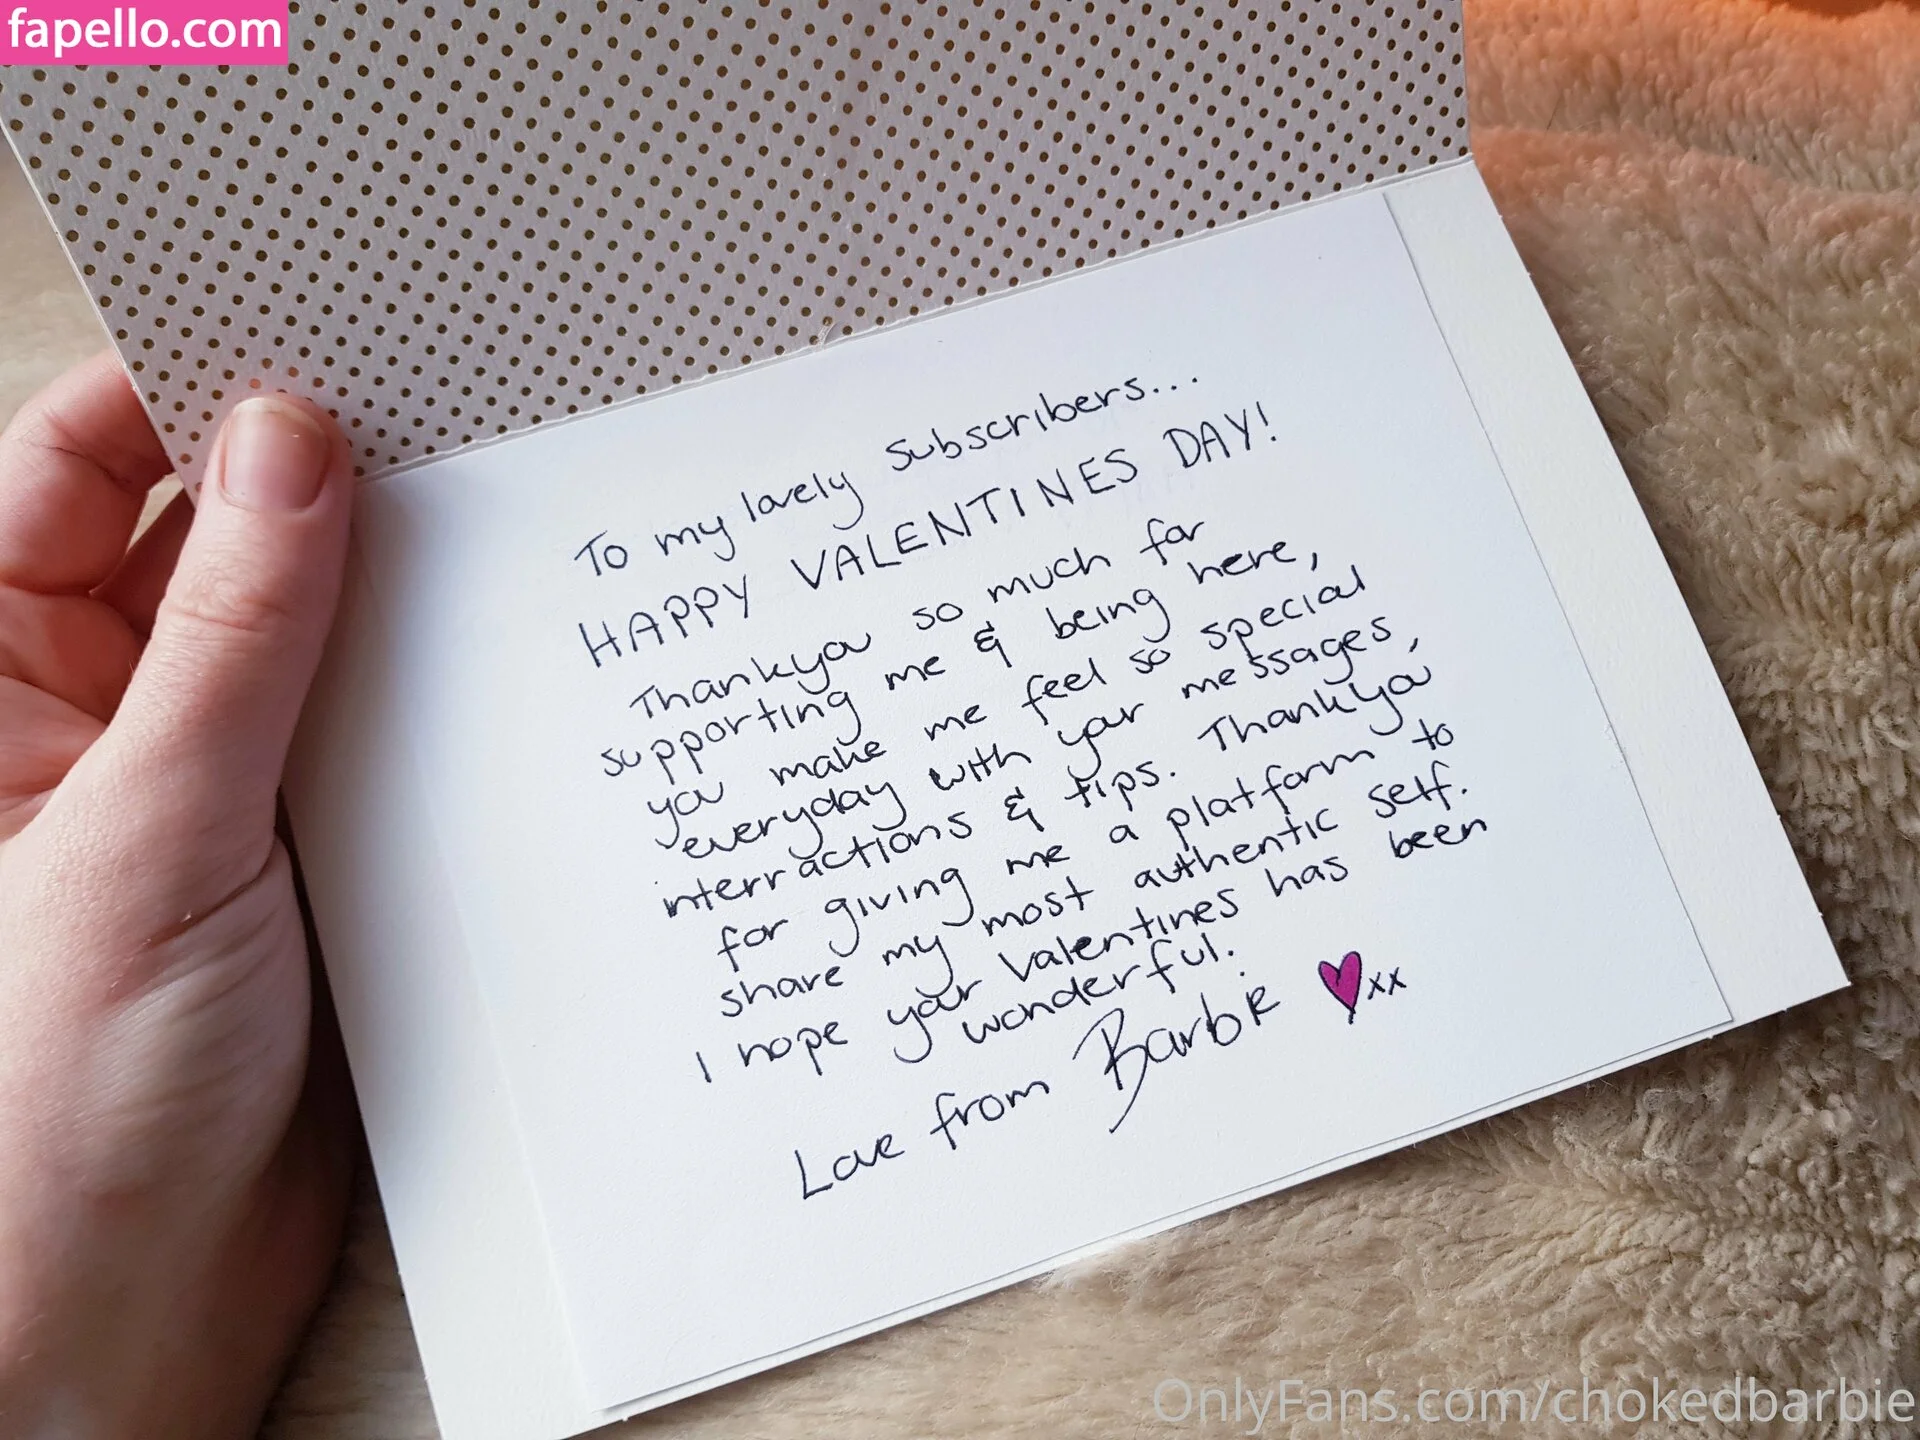 fapello.com
To my lovely subscribers...
HAPPY VALENTINES DAY!
Thankyou so much for
supporting me & being here,
you make me feel so special
everyday with your messages,
interractions & tips. Thankyou
for giving me a platform to
share my most authentic self.
I hope your valentines has been
wonderful.
Love from Barbie xx
OnlyFans.com/chokedbarbie